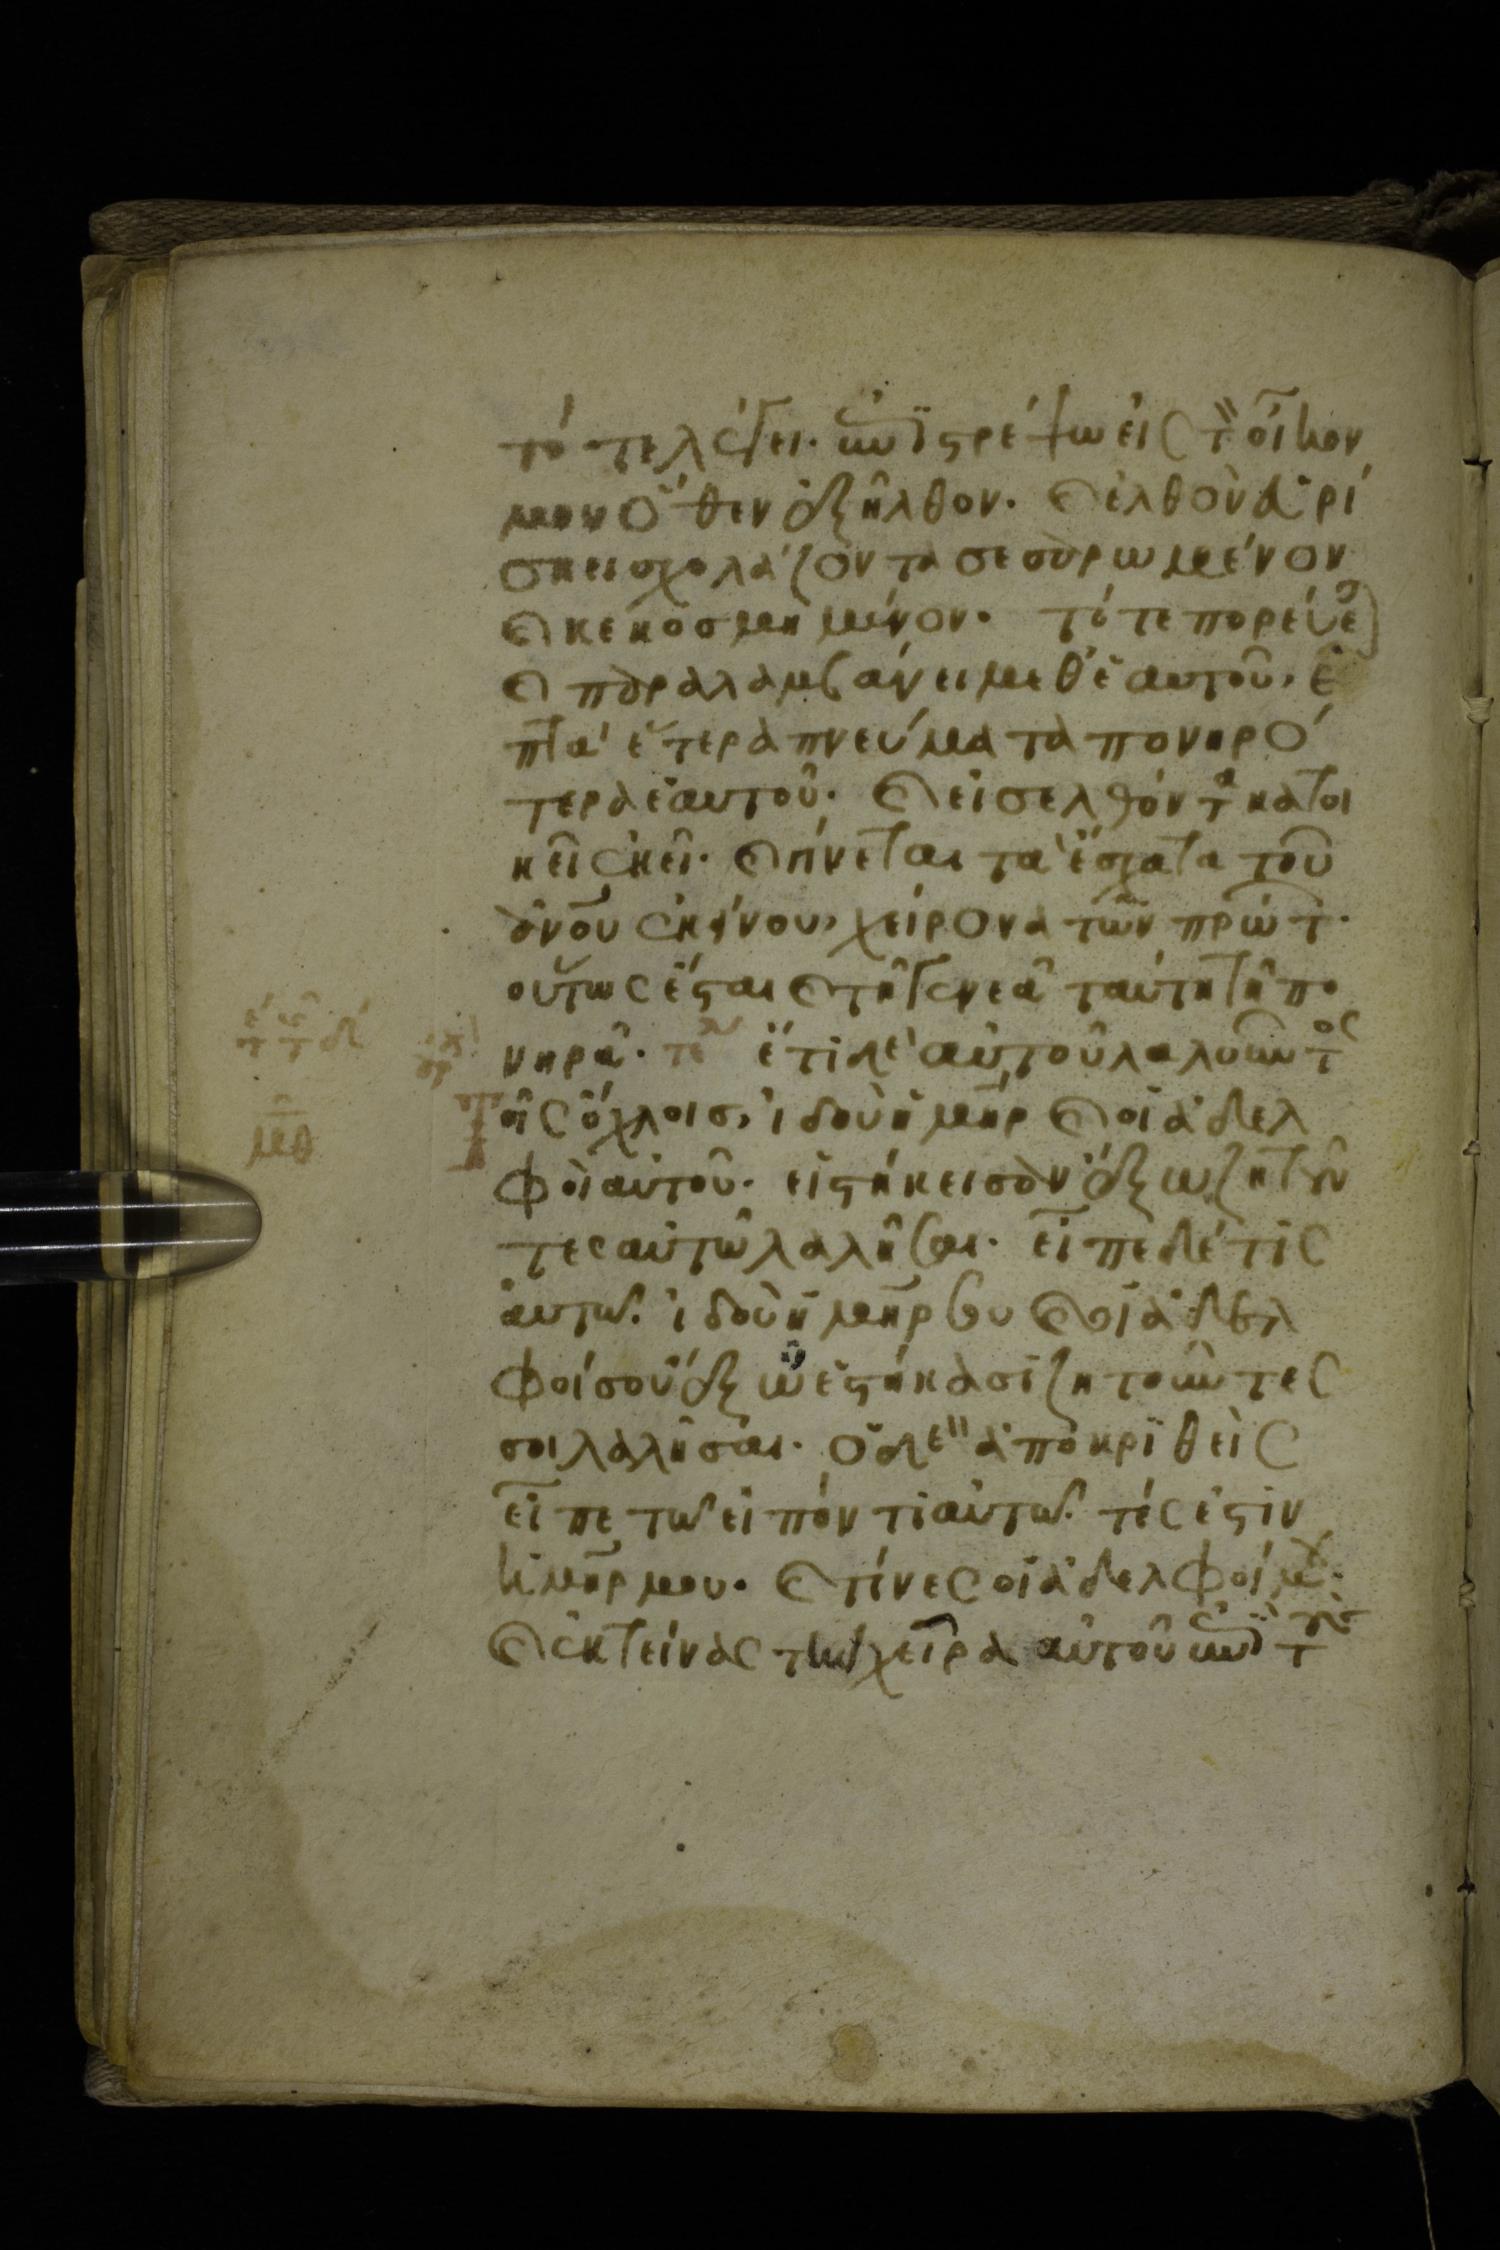 τότε λέγει· ἐπιστρέψω εἰς τὸν οἶκόν
μου ὅθεν ἐξῆλθον· καὶ ἐλθὸν εὑρί
σκει σχολάζοντα σεσαρωμένον
καὶ κεκοσμημένον· τότε πορεύεται
καὶ παραλαμβάνει μεθ' ἑαυτοῦ, ἑ
πτὰ ἕτερα πνεύματα πονηρό
τερα ἑαυτοῦ· καὶ εἰσελθόντα κατοι
κεῖ ἐκεῖ· καὶ γίνεται τὰ ἔσχατα τοῦ
ἀνου ἐκείνου, χείρονα τῶν πρώτων·
οὕτως ἔσται καὶ τῆ γενεᾶ ταύτη τῆ πο
νηρᾶ· τε ἔτι δὲ αὐτοῦ λαλοῦντος
τοῖς ὄχλοις, ἰδοὺ ἡ μηρ καὶ οἱ ἀδελ
φοὶ αὐτοῦ· εἱστήκεισαν ἔξω ζητοῦν
τες αὐτῶ λαλῆσαι· εἶπε δέ τις
αὐτῶ· ἰδοὺ ἡ μηρ σου καὶ οἱ ἀδελ
φοί σου ἔξω ἑστήκασι ζητοῦντες
σοι λαλῆσαι· ὁ δὲ ἀποκριθεὶς
εἶπε τῶ εἰπόντι αὐτῶ· τίς ἐστιν
ἡ μηρ μου· καὶ τίνες οἱ ἀδελφοί μου·
καὶ ἐκτείνας τὴν χεῖρα αὐτοῦ ἐπὶ τοὺς